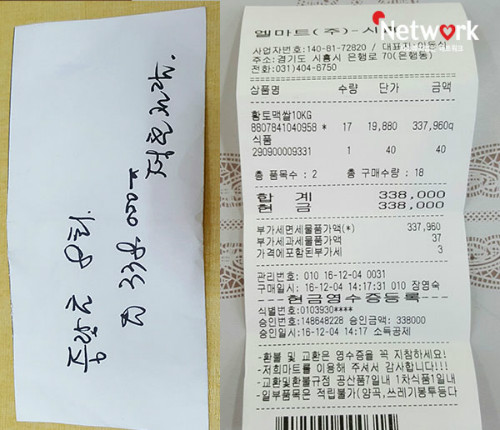 338,000
Network
엘마트(주)-시
사업자번호:140-81-72820 / 대표자:이문식
주소:경기도 시흥시 은행로 70(은행동)
전화:(031)404-6750
상품명 수량 단가 금액
황토맥쌀10KG
8807841040958 * 17 19,880 337,960q
식품
290900009331 1 40 40
총 품목수 : 2 총 구매수량 : 18
합 계 338,000
현 금 338,000
부가세면세물품가액(*) 337,960
부가세과세물품가액 37
가격에포함된부가세 3
관리번호: 010 16-12-04 0031
구매일시: 16-12-04 14:17:31 010 장영숙
현금영수증등록
식별번호:0103930****
승인번호:148648228 승인금액: 338000
승인일시:16-12-04 14:17 소득공제
-환불 및 교환은 영수증을 꼭 지참하세요!
-저희마트를 이용해 주셔서 감사합니다!!!
-교환및환불규정 공산품7일내 1차식품1일내
-일부품목은 적립불가(양곡,쓰레기봉투등다